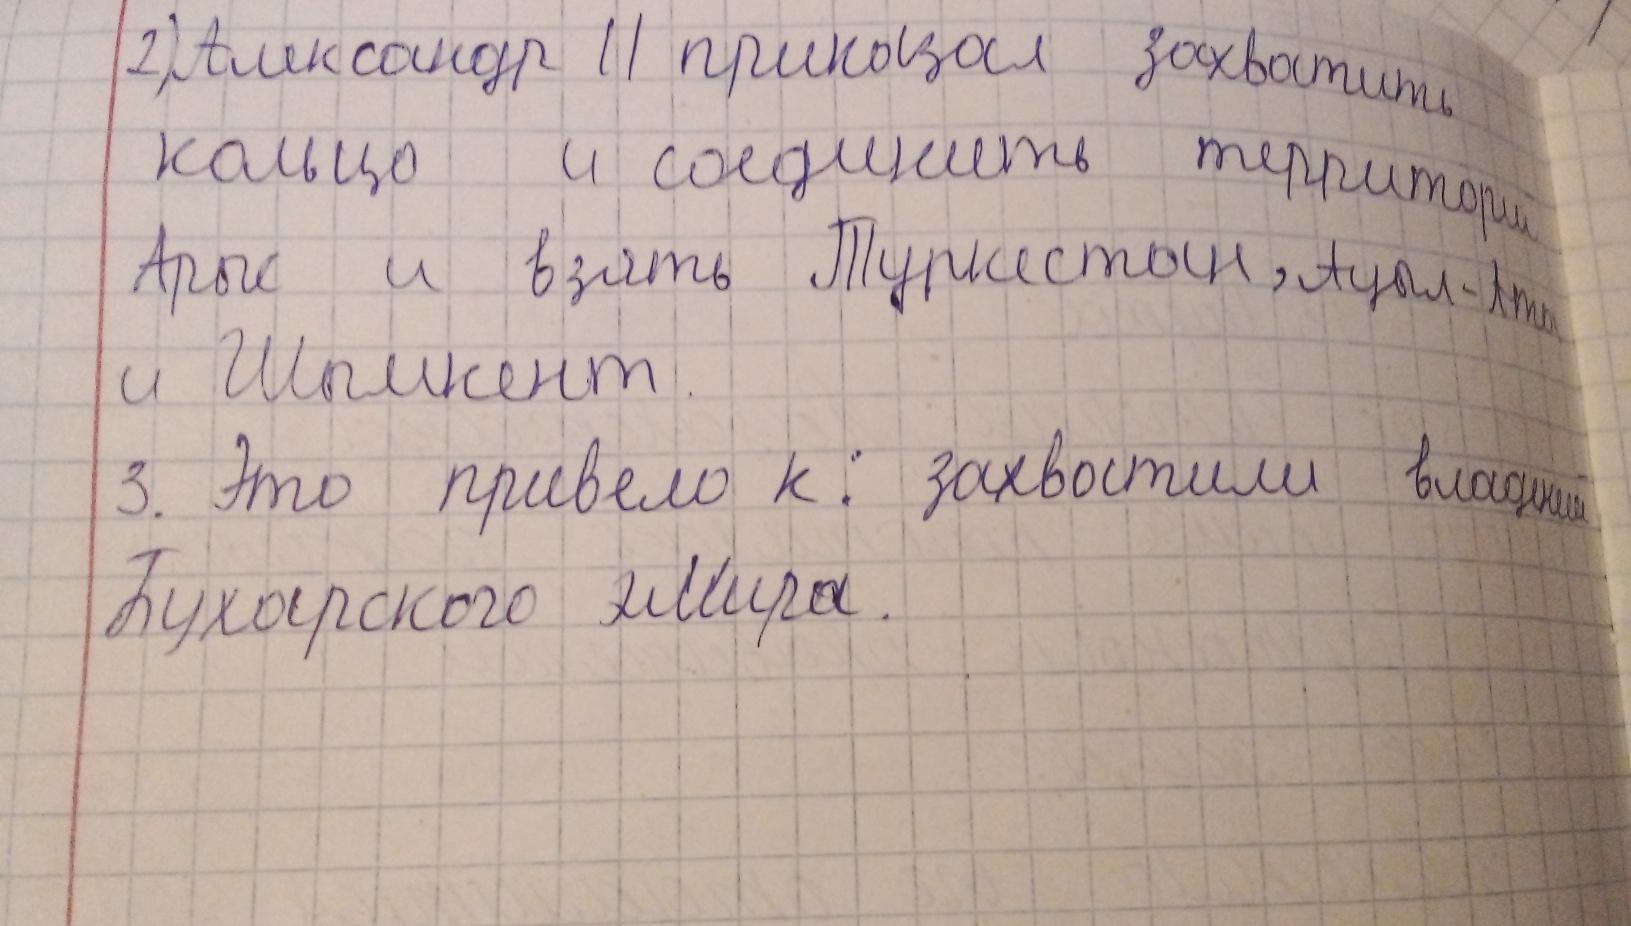 2) Александр II приказал захватить
кальцо и соединить территории
Арыс и взять Туркестан, Ауыл-Аты
и Шымкент.
3. Это привело к: захватили владений
Бухарского эмира.